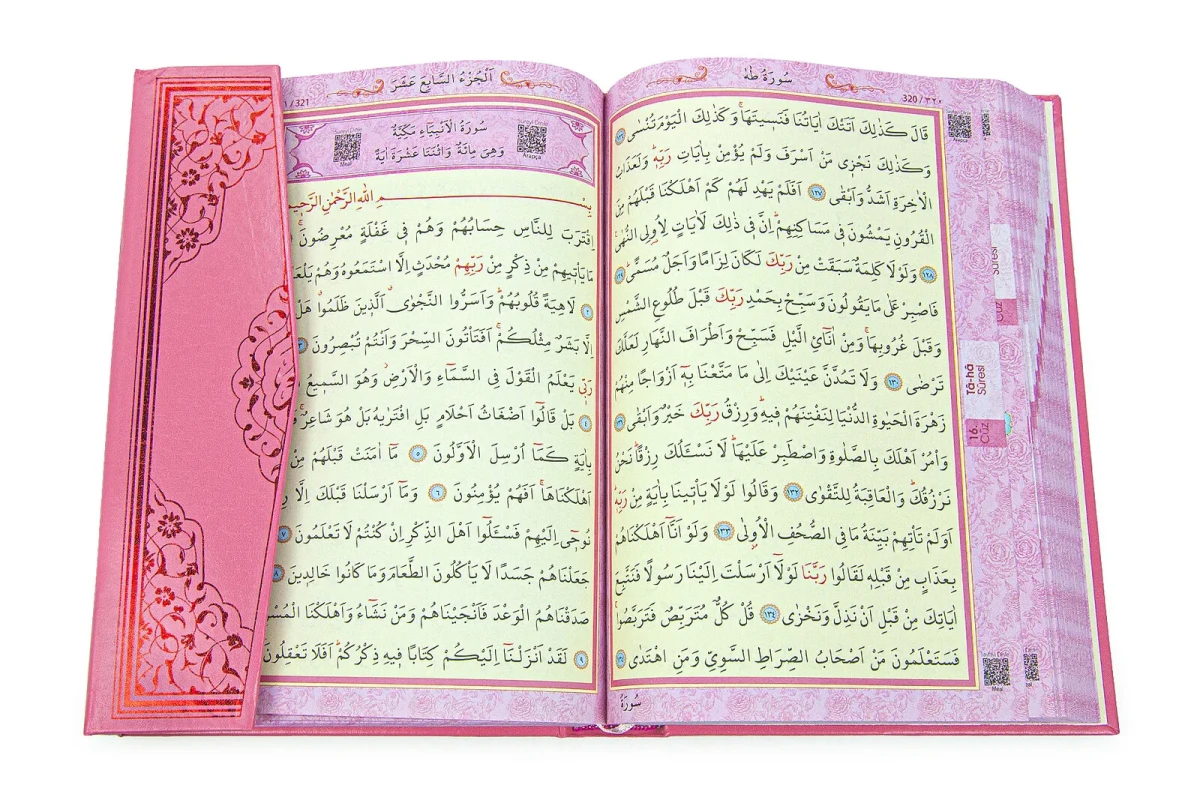 سُورَةُ طٰهٰ
320 / ٣٢٠
قَالَ كَذٰلِكَ اَتَتْكَ اٰيَاتُنَا فَنَسِيتَهَاۚ وَكَذٰلِكَ الْيَوْمَ تُنْسٰى
وَكَذٰلِكَ نَجْزِى مَنْ اَسْرَفَ وَلَمْ يُؤْمِنْ بِاٰيَاتِ رَبِّهِۜ وَلَعَذَابُ
الْاٰخِرَةِ اَشَدُّ وَاَبْقٰى ١٢٧ اَفَلَمْ يَهْدِ لَهُمْ كَمْ اَهْلَكْنَا قَبْلَهُمْ مِنَ
الْقُرُونِ يَمْشُونَ فِى مَسَاكِنِهِمْۜ اِنَّ فِى ذٰلِكَ لَاٰيَاتٍ لِاُولِى النُّهٰى
١٢٨ وَلَوْلَا كَلِمَةٌ سَبَقَتْ مِنْ رَبِّكَ لَكَانَ لِزَامًا وَاَجَلٌ مُسَمًّىۜ
فَاصْبِرْ عَلٰى مَا يَقُولُونَ وَسَبِّحْ بِحَمْدِ رَبِّكَ قَبْلَ طُلُوعِ الشَّمْسِ
وَقَبْلَ غُرُوبِهَاۚ وَمِنْ اٰنَآئِ الَّيْلِ فَسَبِّحْ وَاَطْرَافَ النَّهَارِ لَعَلَّكَ
تَرْضٰى ١٣٠ وَلَا تَمُدَّنَّ عَيْنَيْكَ اِلٰى مَا مَتَّعْنَا بِهٖٓ اَزْوَاجًا مِنْهُمْ
زَهْرَةَ الْحَيٰوةِ الدُّنْيَا لِنَفْتِنَهُمْ فِيهِۜ وَرِزْقُ رَبِّكَ خَيْرٌ وَاَبْقٰى
وَأْمُرْ اَهْلَكَ بِالصَّلٰوةِ وَاصْطَبِرْ عَلَيْهَاۜ لَا نَسْـَٔلُكَ رِزْقًاۜ نَحْنُ
نَرْزُقُكَۜ وَالْعَاقِبَةُ لِلتَّقْوٰى ١٣٢ وَقَالُوا لَوْلَا يَأْتِينَا بِاٰيَةٍ مِنْ رَبِّهِۜ
اَوَلَمْ تَأْتِهِمْ بَيِّنَةُ مَا فِى الصُّحُفِ الْاُولٰى ١٣٣ وَلَوْ اَنَّٓا اَهْلَكْنَاهُمْ
بِعَذَابٍ مِنْ قَبْلِهٖ لَقَالُوا رَبَّنَا لَوْلَٓا اَرْسَلْتَ اِلَيْنَا رَسُولًا فَنَتَّبِعَ
اٰيَاتِكَ مِنْ قَبْلِ اَنْ نَذِلَّ وَنَخْزٰى ١٣٤ قُلْ كُلٌّ مُتَرَبِّصٌ فَتَرَبَّصُواۚ
فَسَتَعْلَمُونَ مَنْ اَصْحَابُ الصِّرَاطِ السَّوِيِّ وَمَنِ اهْتَدٰى
سُورَةُ
Tâ-hâ
Sûresi
16.
Cüz
Sûresi
Cüz
Meal
اَلْجُزْءُ السَّابِعَ عَشَرَ
/ 321
سُورَةُ الْاَنْبِيَاءِ مَكِّيَّةٌ
وَهِىَ مِائَةٌ وَاثْنَتَا عَشْرَةَ اٰيَةً
Arapça
Meal
بِسْمِ اللّٰهِ الرَّحْمٰنِ الرَّحِيمِ
اِقْتَرَبَ لِلنَّاسِ حِسَابُهُمْ وَهُمْ فِى غَفْلَةٍ مُعْرِضُونَۚ
مَا يَأْتِيهِمْ مِنْ ذِكْرٍ مِنْ رَبِّهِمْ مُحْدَثٍ اِلَّا اسْتَمَعُوهُ وَهُمْ
٢ لَاهِيَةً قُلُوبُهُمْۜ وَاَسَرُّوا النَّجْوٰىۗ اَلَّذِينَ ظَلَمُواۗ هَلْ
اِلَّا بَشَرٌ مِثْلُكُمْۚ اَفَتَأْتُونَ السِّحْرَ وَاَنْتُمْ تُبْصِرُونَ ٣
رَبِّى يَعْلَمُ الْقَوْلَ فِى السَّمَٓاءِ وَالْاَرْضِۘ وَهُوَ السَّمِيعُ
٤ بَلْ قَالُٓوا اَضْغَاثُ اَحْلَامٍ بَلِ افْتَرٰيهُ بَلْ هُوَ شَاعِرٌۚ
بِاٰيَةٍ كَمَٓا اُرْسِلَ الْاَوَّلُونَ ٥ مَٓا اٰمَنَتْ قَبْلَهُمْ مِنْ
اَهْلَكْنَاهَاۚ اَفَهُمْ يُؤْمِنُونَ ٦ وَمَٓا اَرْسَلْنَا قَبْلَكَ اِلَّا
نُوحِى اِلَيْهِمْ فَسْـَٔلُٓوا اَهْلَ الذِّكْرِ اِنْ كُنْتُمْ لَا تَعْلَمُونَ ٧
جَعَلْنَاهُمْ جَسَدًا لَا يَأْكُلُونَ الطَّعَامَ وَمَا كَانُوا خَالِدِينَ ٨
صَدَقْنَاهُمُ الْوَعْدَ فَاَنْجَيْنَاهُمْ وَمَنْ نَشَٓاءُ وَاَهْلَكْنَا
٩ لَقَدْ اَنْزَلْنَٓا اِلَيْكُمْ كِتَابًا فِيهِ ذِكْرُكُمْۜ اَفَلَا تَعْقِلُونَ